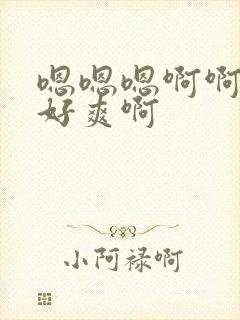 嗯嗯嗯啊啊
好爽啊
小阿禄啊